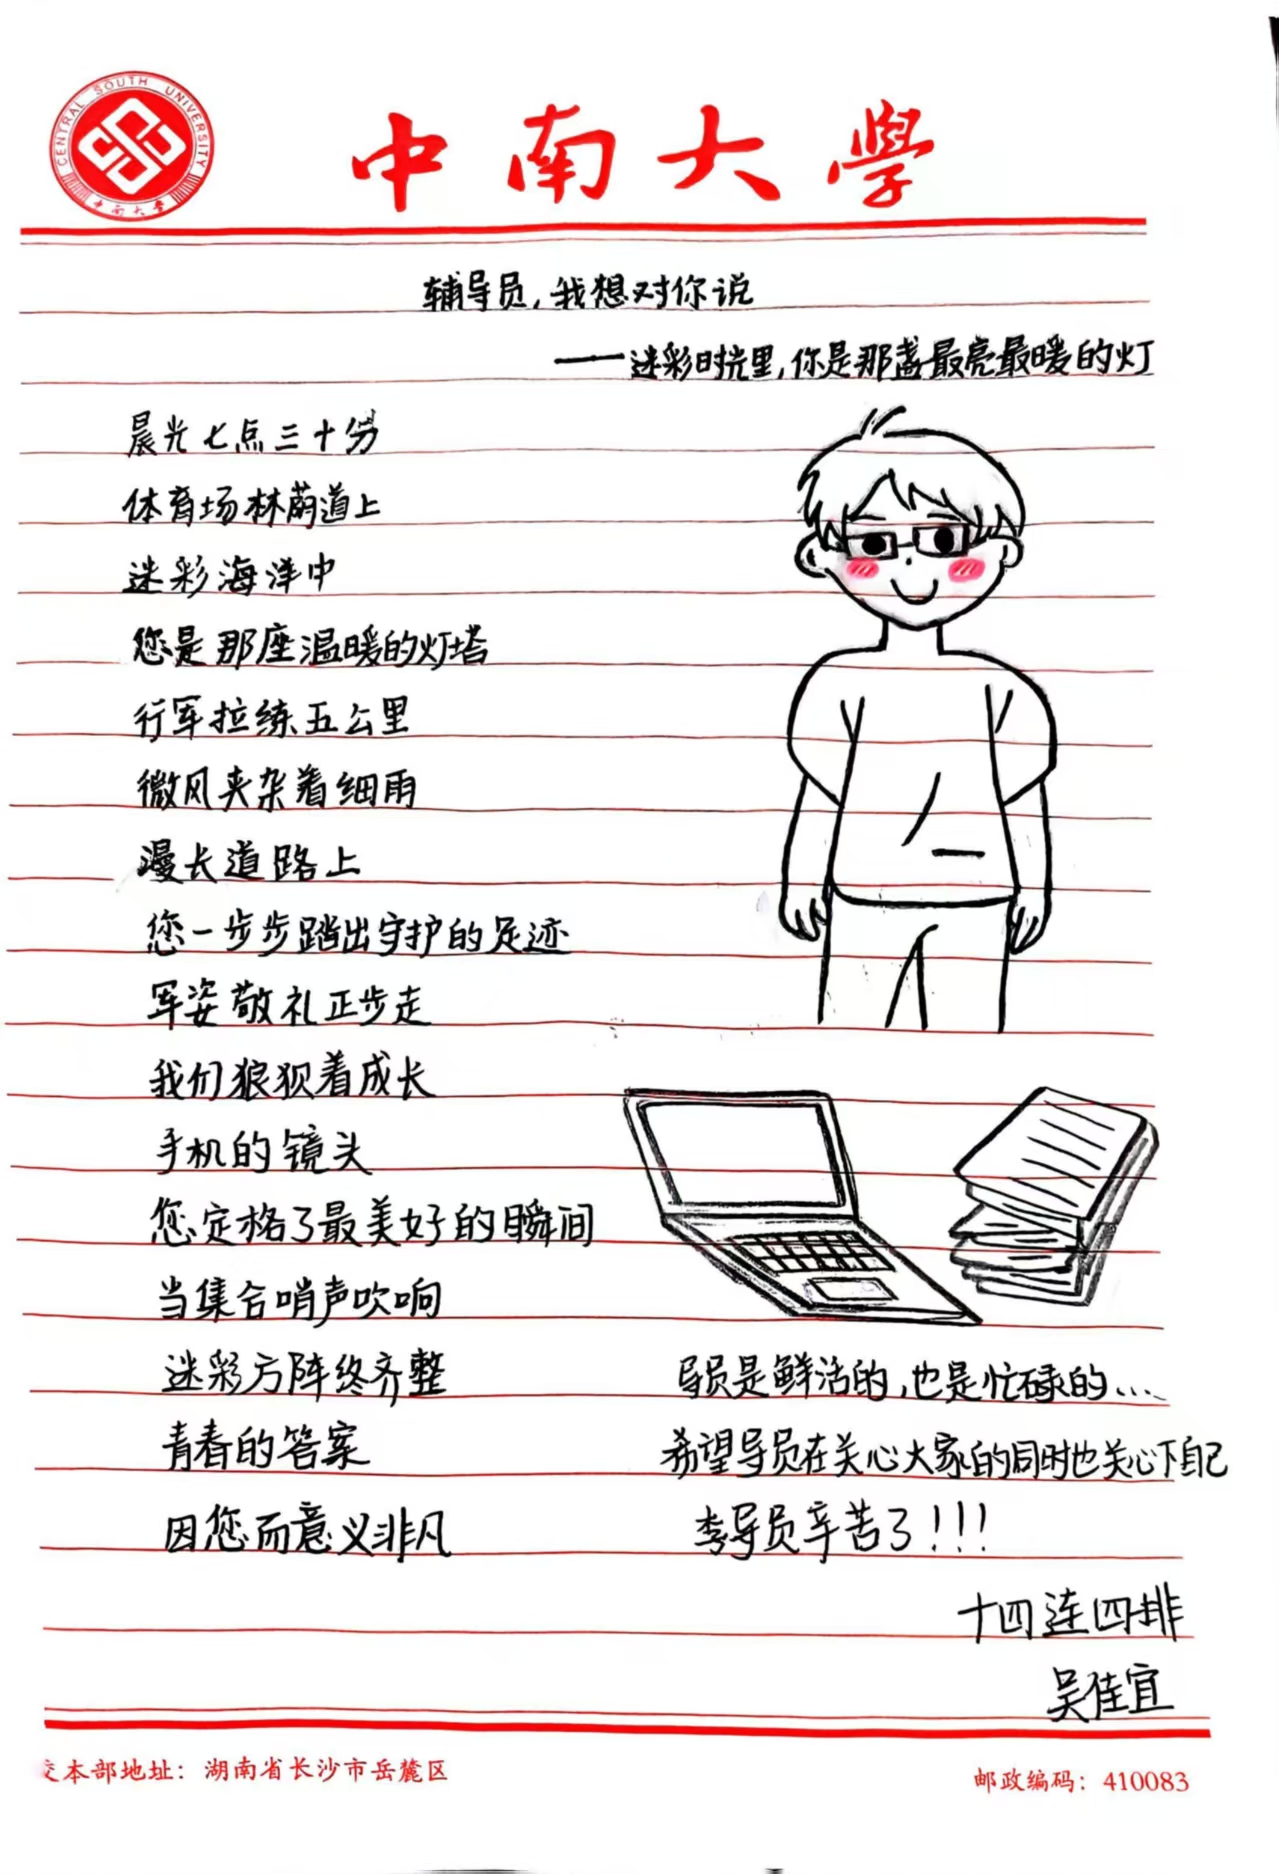 CENTRAL SOUTH UNIVERSITY
中南大學
中南大學
辅导员，我想对你说
——迷彩时光里，你是那盏最亮最暖的灯
晨光七点三十分
体育场林荫道上
迷彩海洋中
您是那座温暖的灯塔
行军拉练五公里
微风夹杂着细雨
漫长道路上
您一步步踏出守护的足迹
军姿敬礼正步走
我们狼狈着成长
手机的镜头
您定格了最美好的瞬间
当集合哨声吹响
迷彩方阵终齐整
青春的答案
因您而意义非凡
导员是鲜活的，也是忙碌的....
希望导员在关心大家的同时也关心下自己
李导员辛苦了！！！
十四连四排
吴佳宜
校本部地址：湖南省长沙市岳麓区
邮政编码：410083